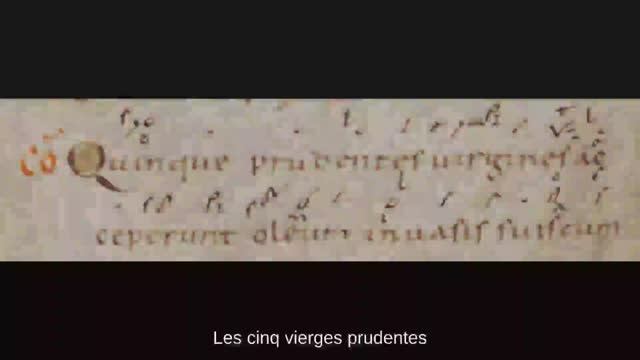 Cō Quinque prudentes uirgines ac
ceperunt oleum inuasis suiscum
Les cinq vierges prudentes